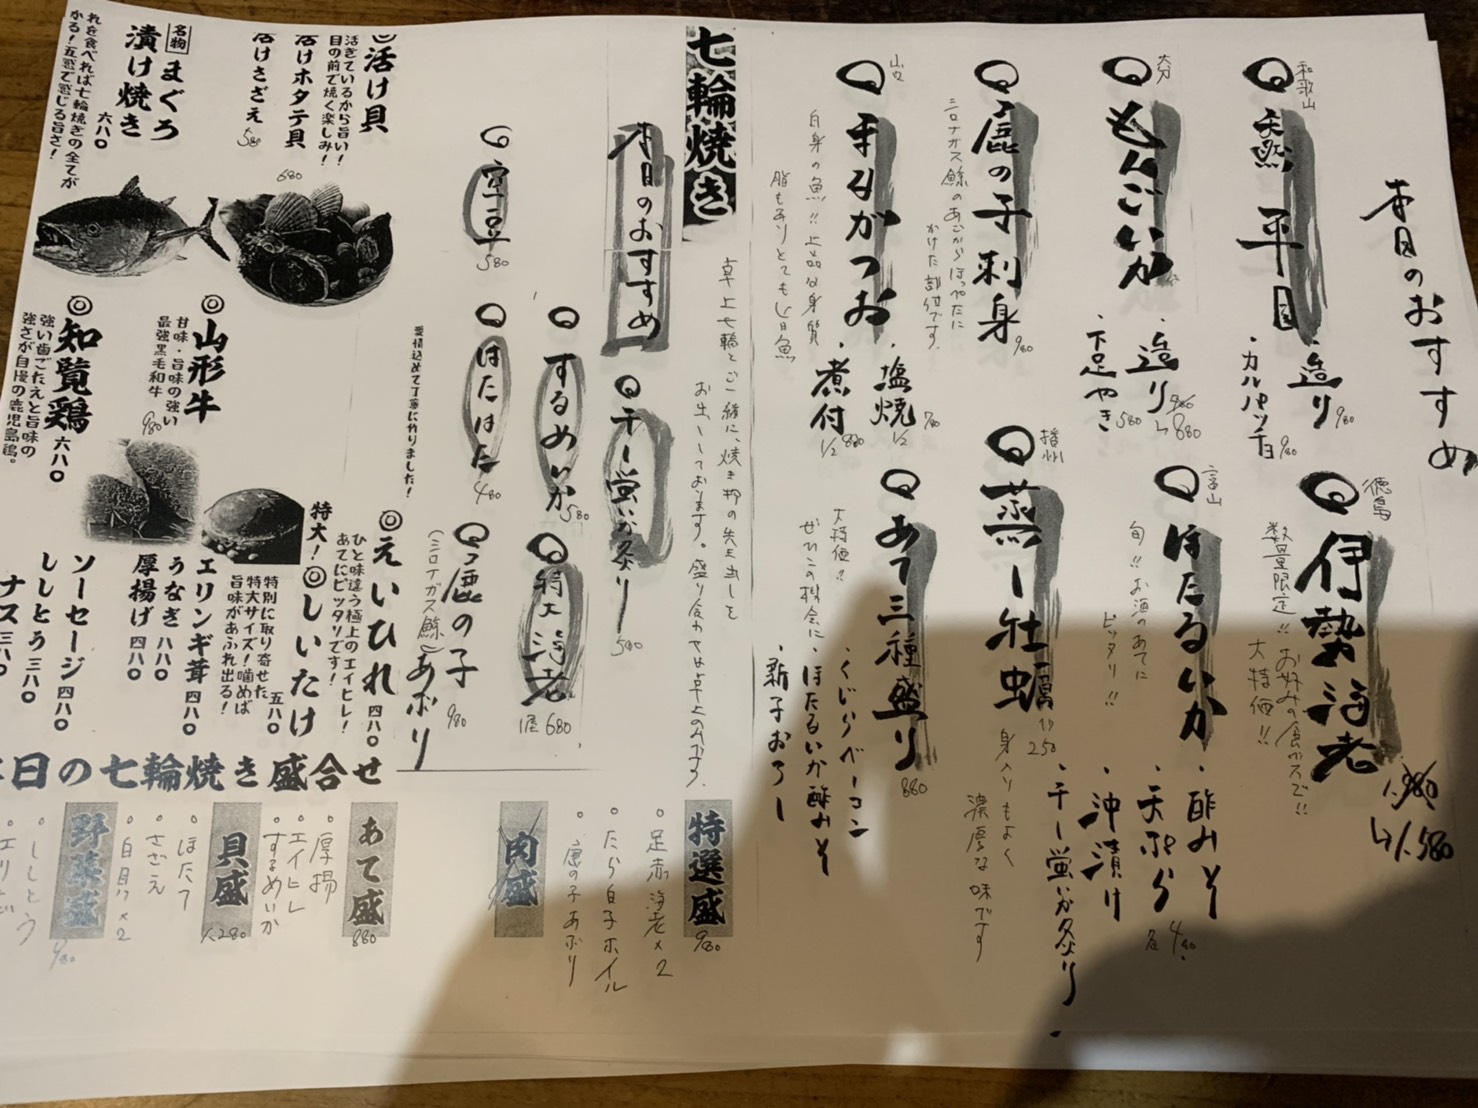 本日のおすすめ
和歌山
天然 平目
・造り 980
・カルパッチョ 980
徳島
伊勢海老
数量限定!!お好みの食べ方で!!
大特価!!
1,980
↳1,580
大分
もんごいか
・造り 980
↳880
・下足やき 580
富山
ほたるいか
旬!!お酒のあてに
ピッタリ!!
・酢みそ
・天ぷら
・沖漬け
各480
・干し蛍いか炙り
鹿の子刺身
980
ミロナガス鯨のあごからほっぺたに
かけた部位です。
播州
蒸し牡蠣
250
身入りもよく
濃厚な味です
山口
白身の魚!!上品な身質
脂もありとても
・塩焼 1/2 780
・煮付 1/2 880
あて三種盛り
880
大特価!!
ぜひこの機会に
・くじらベーコン
・ほたるいか酢みそ
・新子おろし
七輪焼き
卓上七輪とご一緒に、焼き物の先出しを
お出ししております。盛り合わせは卓上の
本日のおすすめ
干し蛍いか炙り
580
するめいか
580
特大 海老
1尾 680
空豆
580
はたはた
480
鹿の子
(ミロナガス鯨)あボリ
980
愛情込めて丁寧に作りました!
◎活け貝
活きているから旨い!
目の前で焼く楽しみ!
活けホタテ貝
680
活けさざえ
580
名物
まぐろ
漬け焼き
六八〇
れを食べれば七輪焼きの全てが
かる!五感で感じる旨さ!
◎山形牛
甘味・旨味の強い
最強黒毛和牛
980
◎知覧鶏 六八〇
強い歯ごたえと旨味の
強さが自慢の鹿児島鶏。
◎えいひれ 四八〇
ひと味違う極上のエイヒレ!
あてにピッタリです!
特大!◎しいたけ
五八〇
特別に取り寄せた
特大サイズ!噛めば
旨味があふれ出る!
エリンギ茸 四八〇
うなぎ 八八〇
厚揚げ 四八〇
ソーセージ 四八〇
ししとう 三八〇
ナス 三八〇
日の七輪焼き盛合せ
特選盛
980
○足赤海老×2
○たら白子ホイル
○鹿の子あボリ
肉盛
あて盛
880
○厚揚
○エイヒレ
○するめいか
貝盛
1,280
○ほたて
○さざえ
○白ハマ×2
野菜盛
980
○ししとう